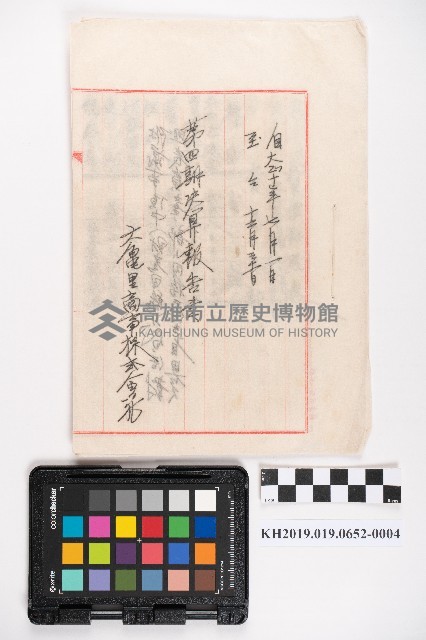 自大正十年七月一日
至仝 十二月三十一日
第四期決算報告書
六龜里商事株式會社
高雄市立歷史博物館
KAOHSIUNG MUSEUM OF HISTORY
KH2019.019.0652-0004
colorchecker
x-rite